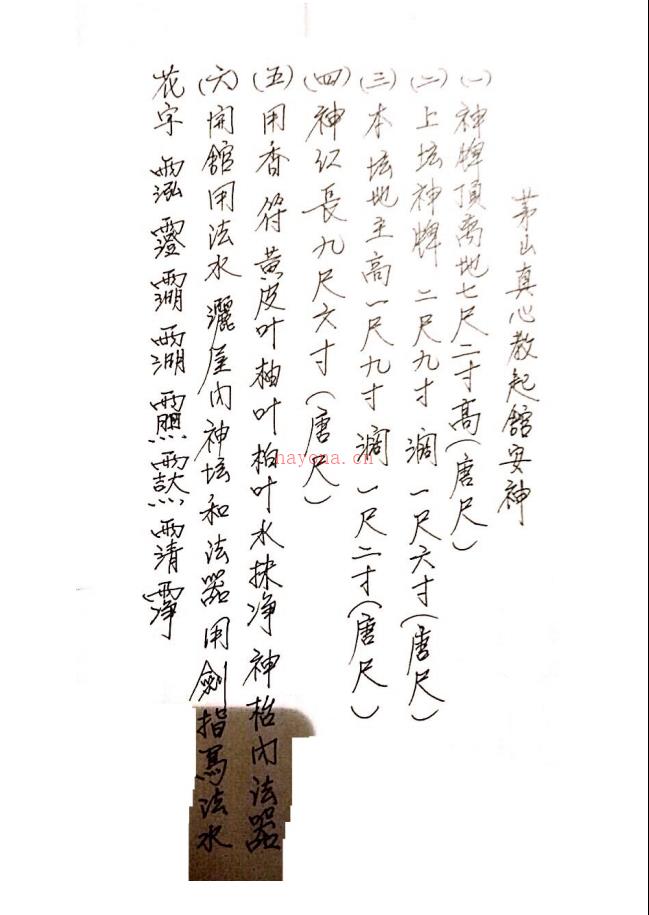 茅山真心教起舘安神
(一)神牌頂离地七尺二寸高(唐尺)
(二)上坛神牌 二尺九寸 濶一尺六寸(唐尺)
(三)本坛地主高一尺九寸 濶一尺二寸(唐尺)
(四)神红長九尺六寸(唐尺)
(五)用香 符 黄皮叶 柚叶 柏叶水抹净 神枱内法器
(六)開舘用法水 灑屋内神坛和法器 用劍指寫法水
花字
hayona.cn